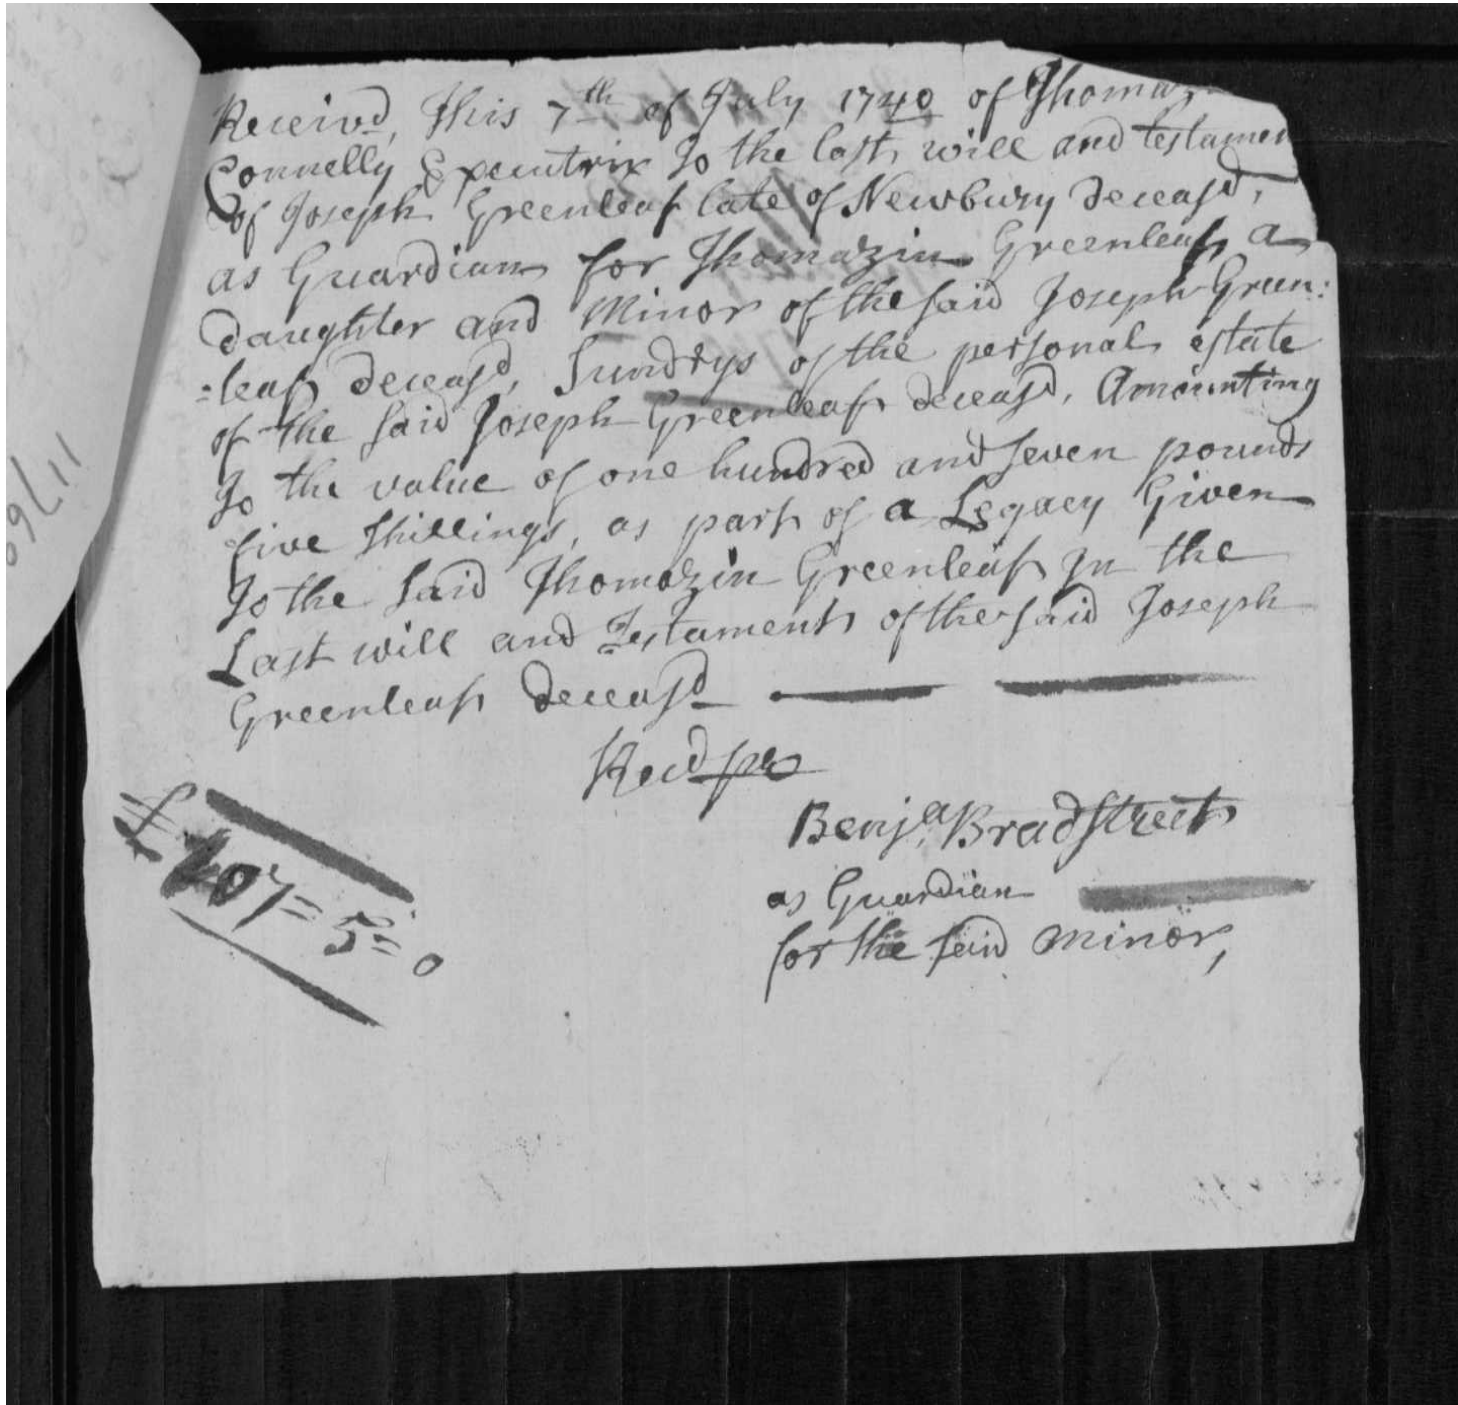 Receiv'd, This 7th of July 1740 of Thomaz
Connelly Executrix To the last will and testamen
of Joseph Greenleaf late of Newbury deceasd,
as Guardian for Thomazin Greenleaf a
daughter and Minor of the said Joseph Green:
=leaf deceasd, Sundrys of the personal estate
of the said Joseph Greenleaf deceasd, Amounting
To the value of one hundred and seven pounds
five shillings, as part of a Legacy Given
To the said Thomazin Greenleaf In the
Last will and Testament of the said Joseph
Greenleaf deceasd
Recd per
Benja Bradstreet
as Guardian
for the said minor,
£107=5=0
09/11